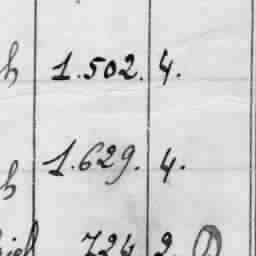 h 1.502. 4.
h 1.629. 4.
724 2.